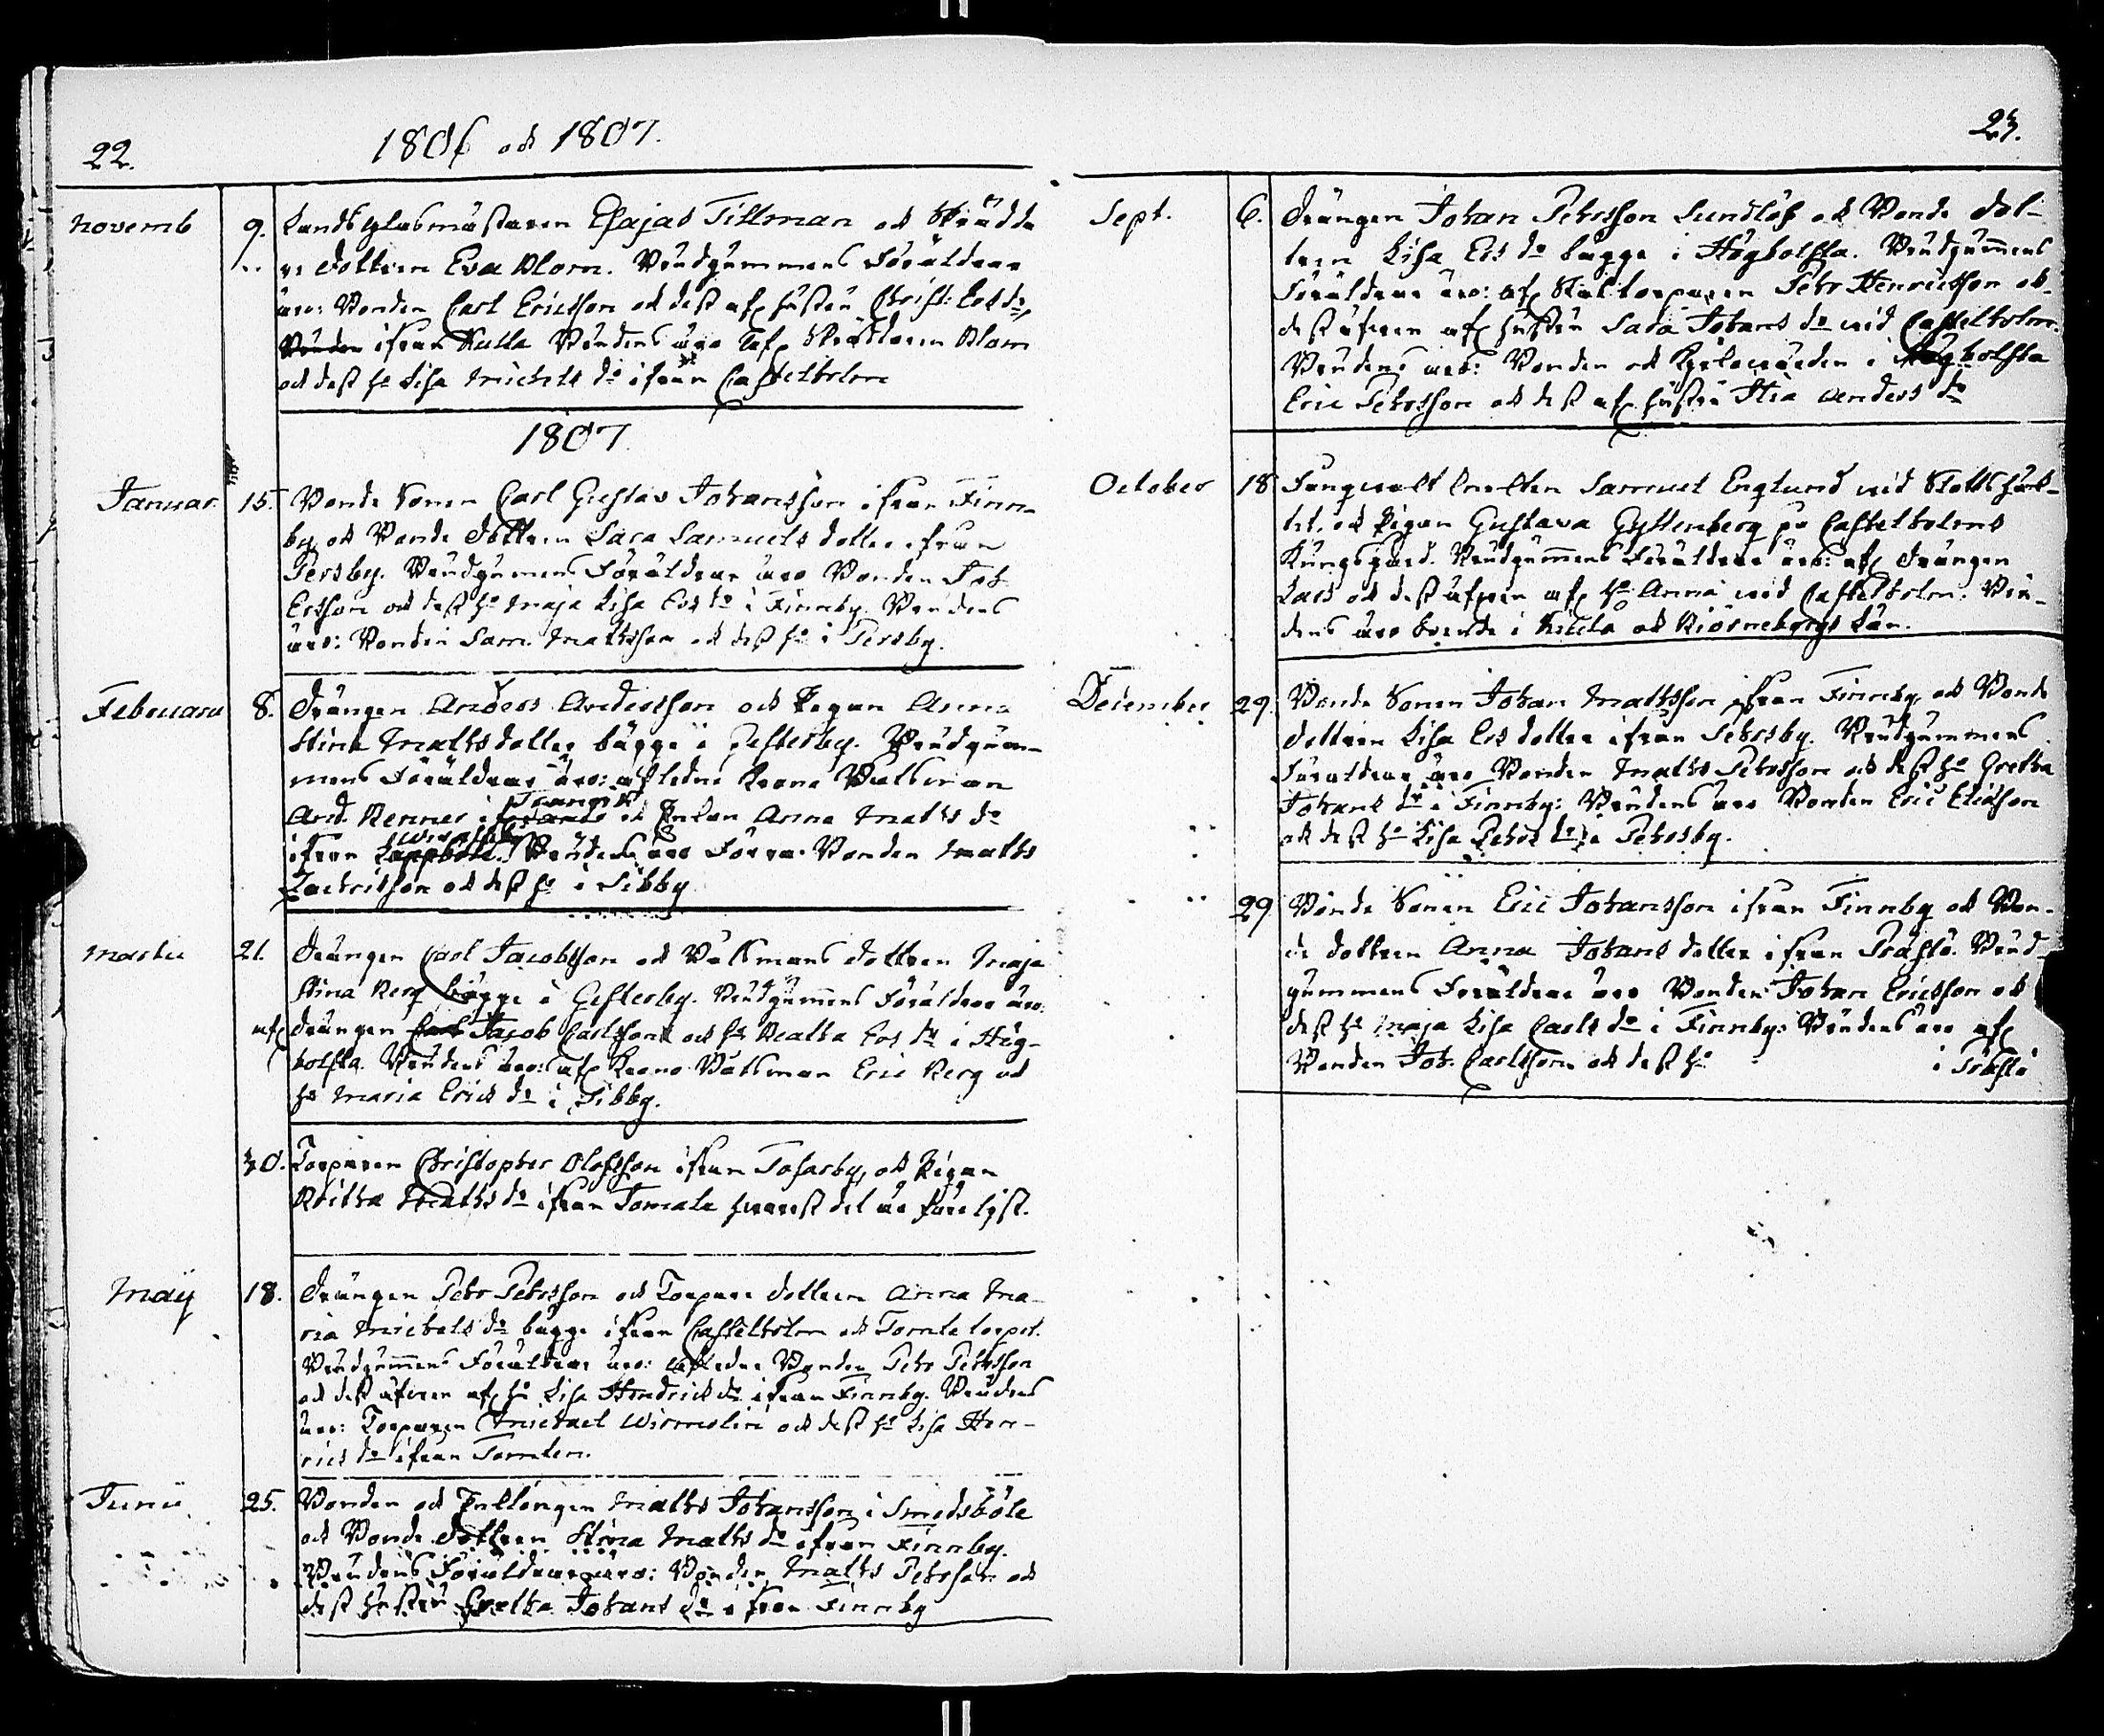 22.
1806 och 1807.
novemb 9. Landtglasmästaren Esajas Tillman och Skrädda
re dottren Eva Blom. Brudgummens Föräldrar
äro: Bonden Carl Ericsson och dess afl. hustru Christ: Ersdr
Bruden ifrån Kulla Brudens äro afl. Skräddaren Blom
och dess ha Lisa Michels dr ifrån Castelholm
1807
Januar. 15. Bonde Sonen Carl Gustav Johansson ifrån Finn-
by och Bonde dottren Sara Samuels dotter ifrån
Persby. Brudgumens Föräldrar äro Bonden Joh
Ersson och dess ha Maja Lisa Ersdr i Finnby. Brudens
äro: Bonden Sam. Mattsson och dess ha i Persby.
Februarii 8. Drängen Anders Andersson och Pigan Anna
Stina Mattsdotter bägge i Gesterby. Brudgum-
mens Föräldrar äro: afledne Krono Båtsman
And. Renner i Framvik och Enkan Anna Matts dr
ifrån Lappböle. Brudens äro Förra Bonden Matts
Zachrisson och dess ha i Sibby
Martii 21. Drängen Carl Jacobsson och Båtsmans dottren Maja
Stina Berg bägge i Gesterby. Brudgummens Föräldrar äro:
afl. drängen Carl Jacob Carlsson och ha Beatha Ers dr i Hög-
bolsta. Brudens äro: afl. Krono Båtsman Eric Berg och
ha Maria Erics dr i Sibby.
30. Torparen Christopher Olofsson ifrån Tosarby, och Pigan
Britha Matts dr ifrån Tomala hvarest det är före lyst.
Maij 18. Drängen Pehr Pehrsson och Torpare dottren Anna Ma-
ria Michels dr bägge ifrån Castelholm och Tomte torpet.
Brudgummens Föräldrar äro: afledne Bonden Pehr Pehrsson
och dess äfven afl. ha Lisa Hendrics dr ifrån Finnby. Brudens
äro: Torparen Michael Wirmelin och dess ha Lisa Hen-
rics dr ifrån Tomten.
Junii 25. Bonden och Enklingen Matts Johansson i Smedsböle
och Bonde dottren Stina Matts dr ifrån Finnby.
Brudens Föräldrar äro: Bonden Matts Pehrsson och
dess hustru Gretha Johans dr ifrån Finnby
23.
Sept. 6. Drängen Johan Pehrsson Sundlöf och Bonde dot-
tren Lisa Ers dr bägge i Högbolsta. Brudgummens
Föräldrar äro: afl. Stattorparen Pehr Henricsson och
dess äfven afl. hustru Sara Johans dr vid Castelholm.
Brudens äro: Bonden och Kyrkovärden i Högbolsta
Eric Pehrsson och dess afl. hustru Stia Anders dr
October 18 Fångvakt Samuel Englund vid Slotts häk-
tet, och Pigan Gustava Gyllenberg på Castelholms
Kungsgård. Brudgummens Föräldrar äro: afl. drängen
Lars och dess äfven afl. ha Anna vid Castelholm. Bru-
dens äro boende i och Biörneborgs Län.
December 29. Bonde Sonen Johan Mattsson ifrån Finnby och Bonde
dottren Lisa Ers dotter ifrån Pehrsby. Brudgummens
Föräldrar äro Bonden Matts Pehrsson och dess ha Gretha
Johans dr i Finnby: Brudens äro Bonden Eric Ericsson
och dess ha Lisa Pehrs dr i Pehrsby.
29 Bonde Sonen Eric Johansson ifrån Finnby och Bon-
de dottren Anna Johans dotter ifrån Prästö. Brud-
gummens Föräldrar äro Bonden Johan Ericsson och
dess ha Maja Lisa Carls dr i Finnby: Brudens äro afl
Bonden Joh. Carlsson och dess ha i Prästö